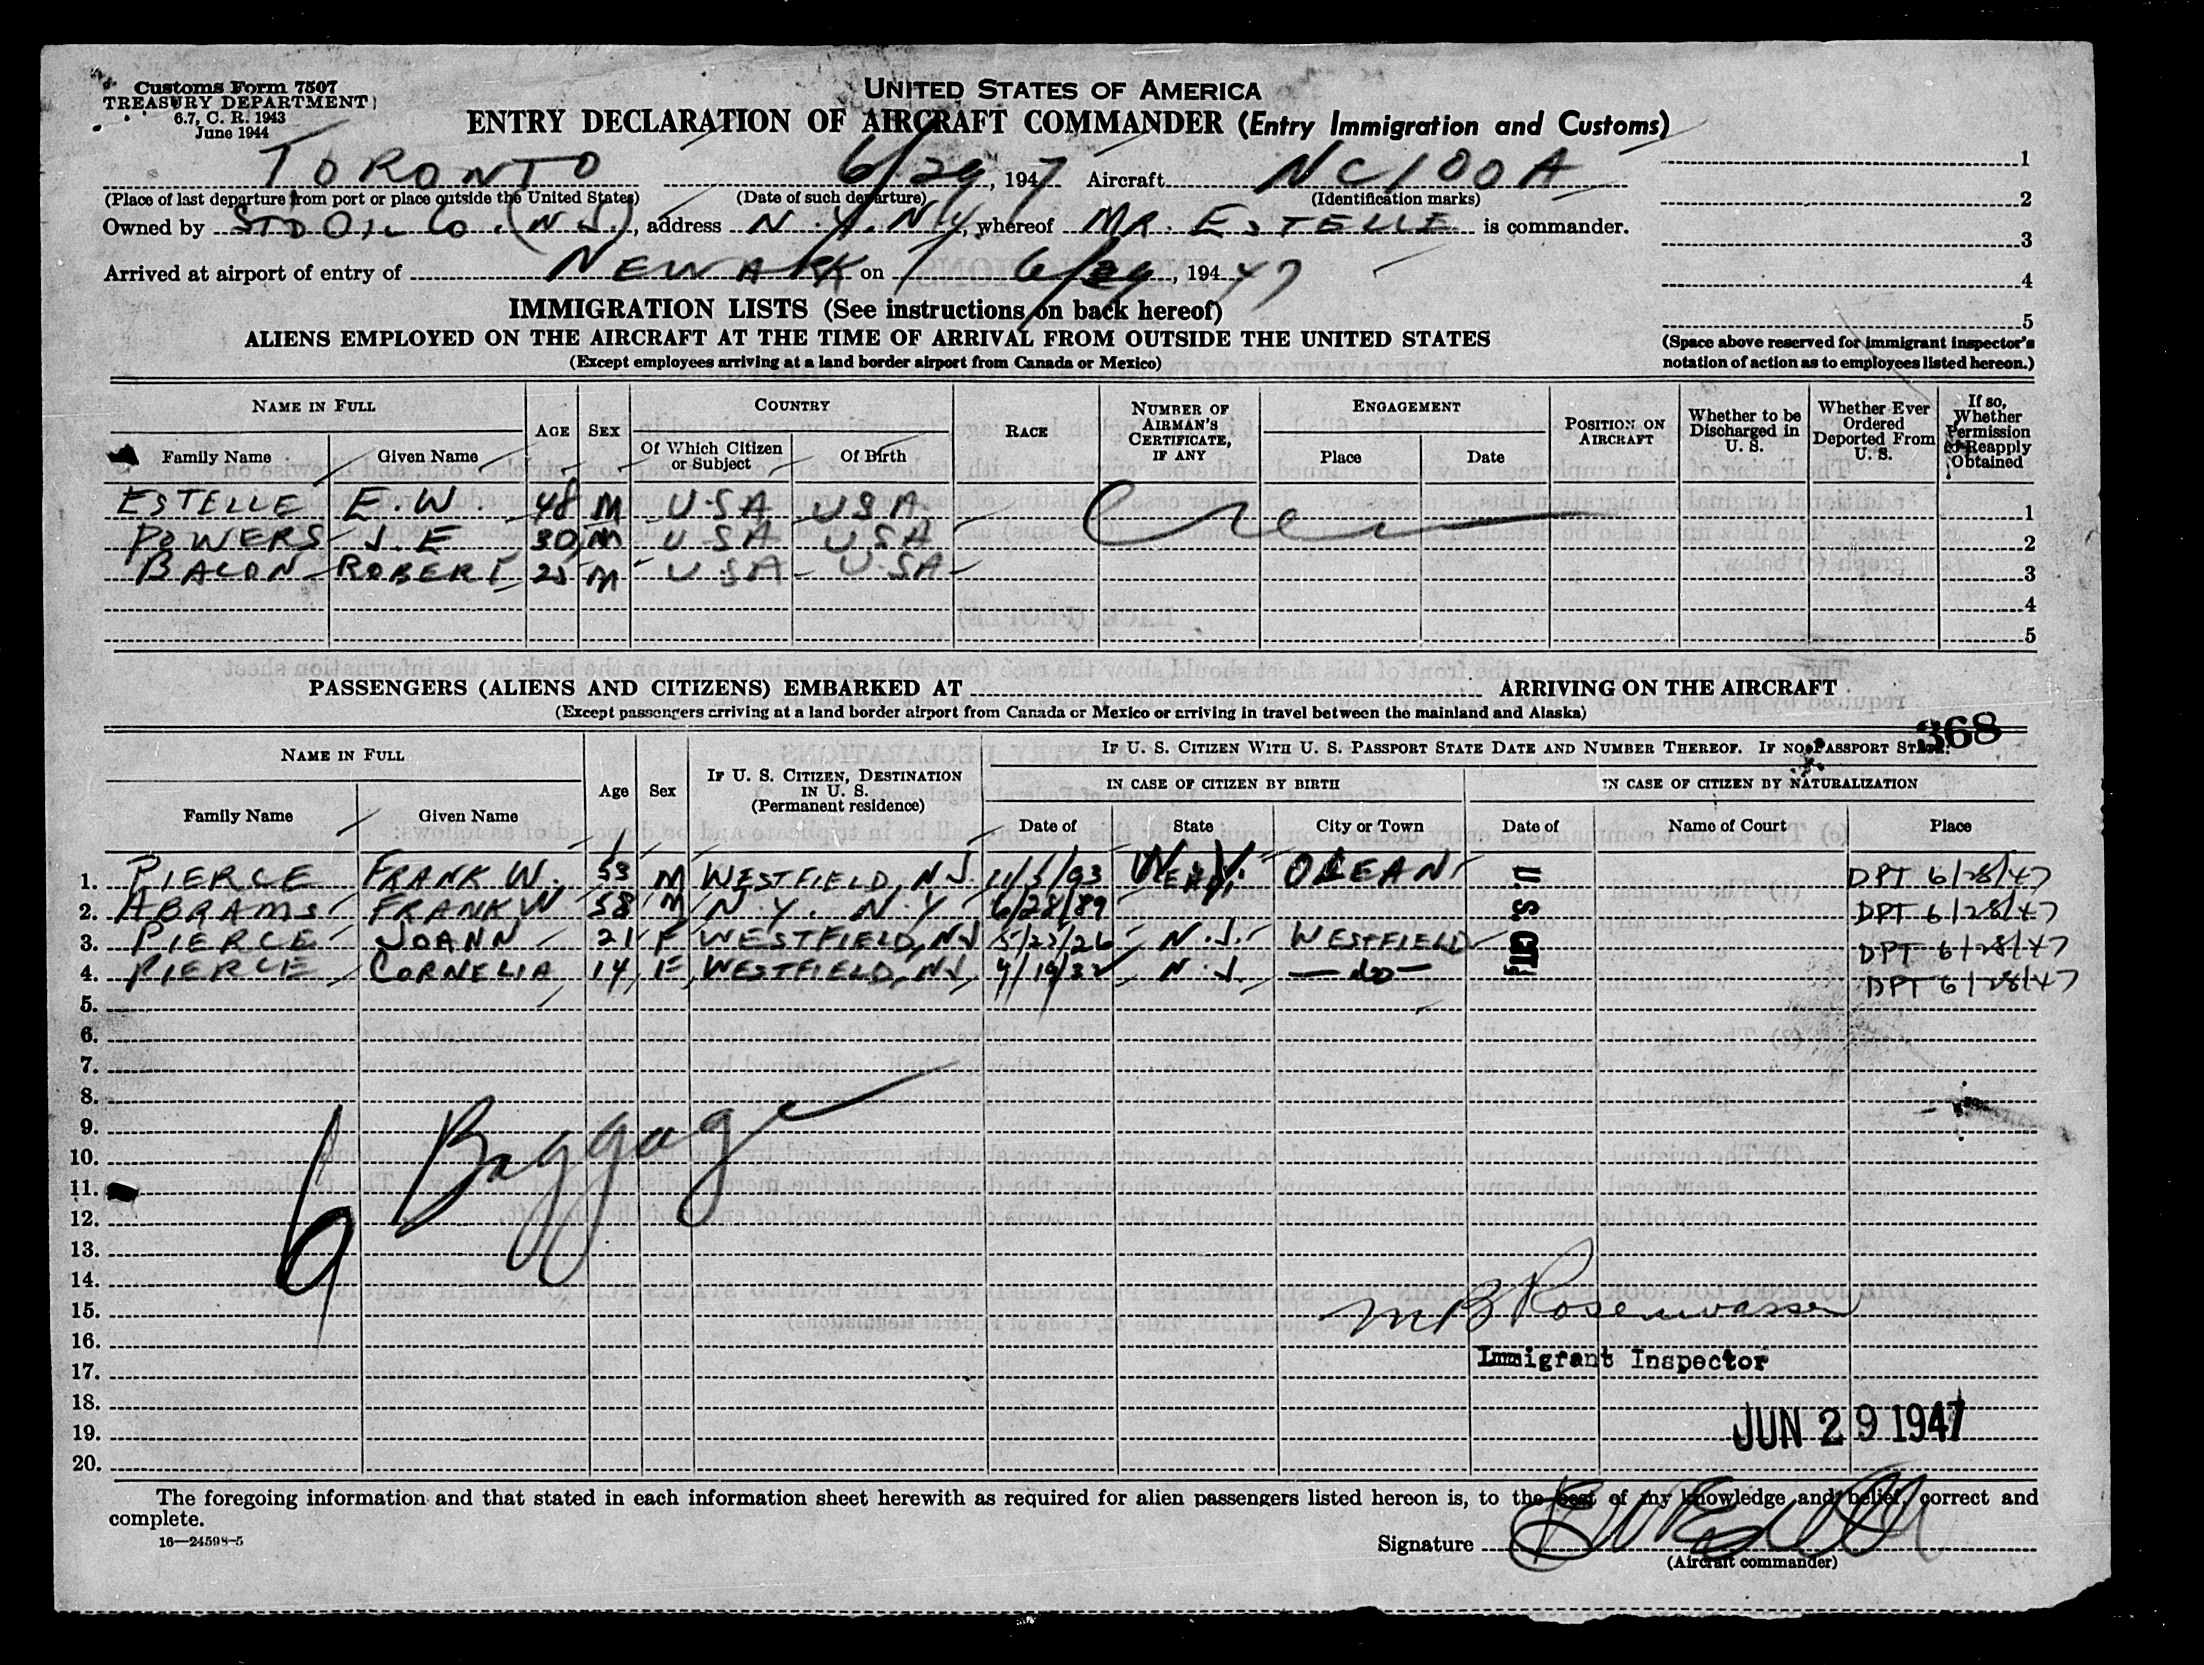 Customs Form 7507
TREASURY DEPARTMENT
6.7, C. R. 1943
June 1944
UNITED STATES OF AMERICA
ENTRY DECLARATION OF AIRCRAFT COMMANDER (Entry Immigration and Customs)
TORONTO 6/29, 1947 Aircraft NC100A
(Place of last departure from port or place outside the United States) (Date of such departure) (Identification marks)
Owned by STD OIL CO. (N.J.), address N.Y. N.Y., whereof MR. ESTELLE is commander.
Arrived at airport of entry of NEWARK on 6/29, 194 47
1
2
3
4
5
(Space above reserved for immigrant inspector's
notation of action as to employees listed hereon.)
IMMIGRATION LISTS (See instructions on back hereof)
ALIENS EMPLOYED ON THE AIRCRAFT AT THE TIME OF ARRIVAL FROM OUTSIDE THE UNITED STATES
(Except employees arriving at a land border airport from Canada or Mexico)
NAME IN FULL AGE SEX COUNTRY RACE NUMBER OF AIRMAN'S CERTIFICATE, IF ANY ENGAGEMENT POSITION ON AIRCRAFT Whether to be Discharged in U. S. Whether Ever Ordered Deported From U. S. If so, Whether Permission to Reapply Obtained
Family Name Given Name Of Which Citizen or Subject Of Birth Place Date
ESTELLE E.W. 48 M USA USA 1
POWERS J.E 30 M USA USA 2
BACON ROBERT 25 M USA USA 3
Crew
4
5
PASSENGERS (ALIENS AND CITIZENS) EMBARKED AT ARRIVING ON THE AIRCRAFT
(Except passengers arriving at a land border airport from Canada or Mexico or arriving in travel between the mainland and Alaska)
368
NAME IN FULL Age Sex IF U. S. CITIZEN, DESTINATION IN U. S. (Permanent residence) IF U. S. CITIZEN WITH U. S. PASSPORT STATE DATE AND NUMBER THEREOF. IF NO PASSPORT STATE:
IN CASE OF CITIZEN BY BIRTH IN CASE OF CITIZEN BY NATURALIZATION
Family Name Given Name Date of State City or Town Date of Name of Court Place
1. PIERCE FRANK W. 53 M WESTFIELD, N.J. 11/5/93 N.Y. OLEAN DPT 6/28/47
2. ABRAMS FRANK W 58 M N.Y. N.Y 6/28/89 DPT 6/28/47
3. PIERCE JOANN 21 F WESTFIELD, NJ 5/25/26 N.J. WESTFIELD DPT 6/28/47
4. PIERCE CORNELIA 14 F WESTFIELD, NJ 9/19/32 N.J. —do— DPT 6/28/47
U.S. CIT
5.
6.
7.
8.
9.
10.
11.
12.
13.
14.
15.
16.
17.
18.
19.
20.
6 Baggage
M B Rosenwasser
Immigrant Inspector
JUN 29 1947
The foregoing information and that stated in each information sheet herewith as required for alien passengers listed hereon is, to the best of my knowledge and belief, correct and
complete.
16—24598-5
Signature E W Estelle
(Aircraft commander)